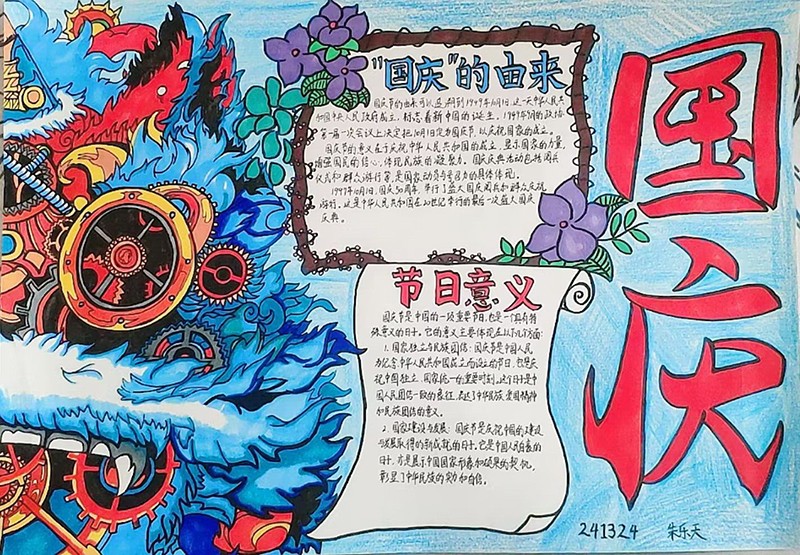 国庆
"国庆"的由来
国庆节的由来可以追溯到1949年10月1日,这一天中华人民共
和国中央人民政府成立,标志着新中国的诞生。1949年9月的政协
第一届一次会议上决定把10月1日定为国庆节,以庆祝国家的成立。
国庆节的意义在于庆祝中华人民共和国的成立,显示国家的力量,
增强国民的信心,体现民族的凝聚力。国庆庆典活动包括阅兵
仪式和群众游行等,是国家动员与号召力的具体体现。
1997年10月1日,国庆50周年,举行了盛大国庆阅兵和群众庆祝
游行。这是中华人民共和国在20世纪举行的最后一次盛大国庆
庆典。
节日意义
国庆节是中国的一项重要节日,也是一个具有特
殊意义的日子。它的意义主要体现在以下几个方面:
1.国家独立与民族团结:国庆节是中国人民
为纪念中华人民共和国成立而设立的节日,也是庆
祝中国独立、国家统一的重要时刻。这个日子是中
国人民团结一致的象征,表达了中华民族爱国精神
和民族团结的意义。
2.国家建设与发展:国庆节是庆祝中国的建设
与发展取得的新成就的日子。它是中国人民自豪的
日子,亦是展示中国国家形象和硕果的契机,
彰显了中华民族的努力和自信。
241324 朱乐天